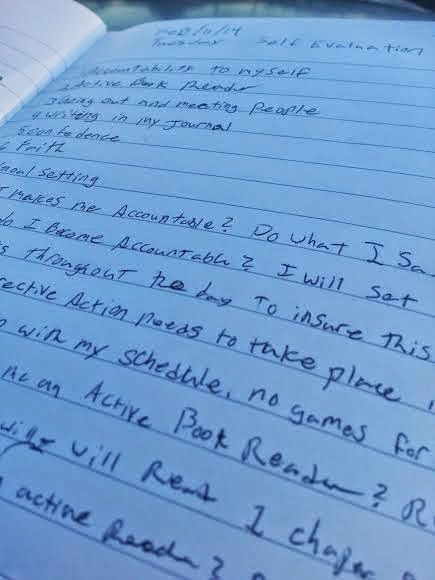 Feb/11/14
Tuesday Self Evaluation
Accountability to myself
2 Active Book Reader
3 Going out and meeting people
4 writing in my Journal
5 confedence
6 Faith
Goal Setting
makes me Accountable? Do what I Sa
do I Become Accountable? I will set
throughout the day to insure this
rective Action needs to take place
with my schedule, no games for
an Active Book Reader?
will will Read 1 chap
active Reader?